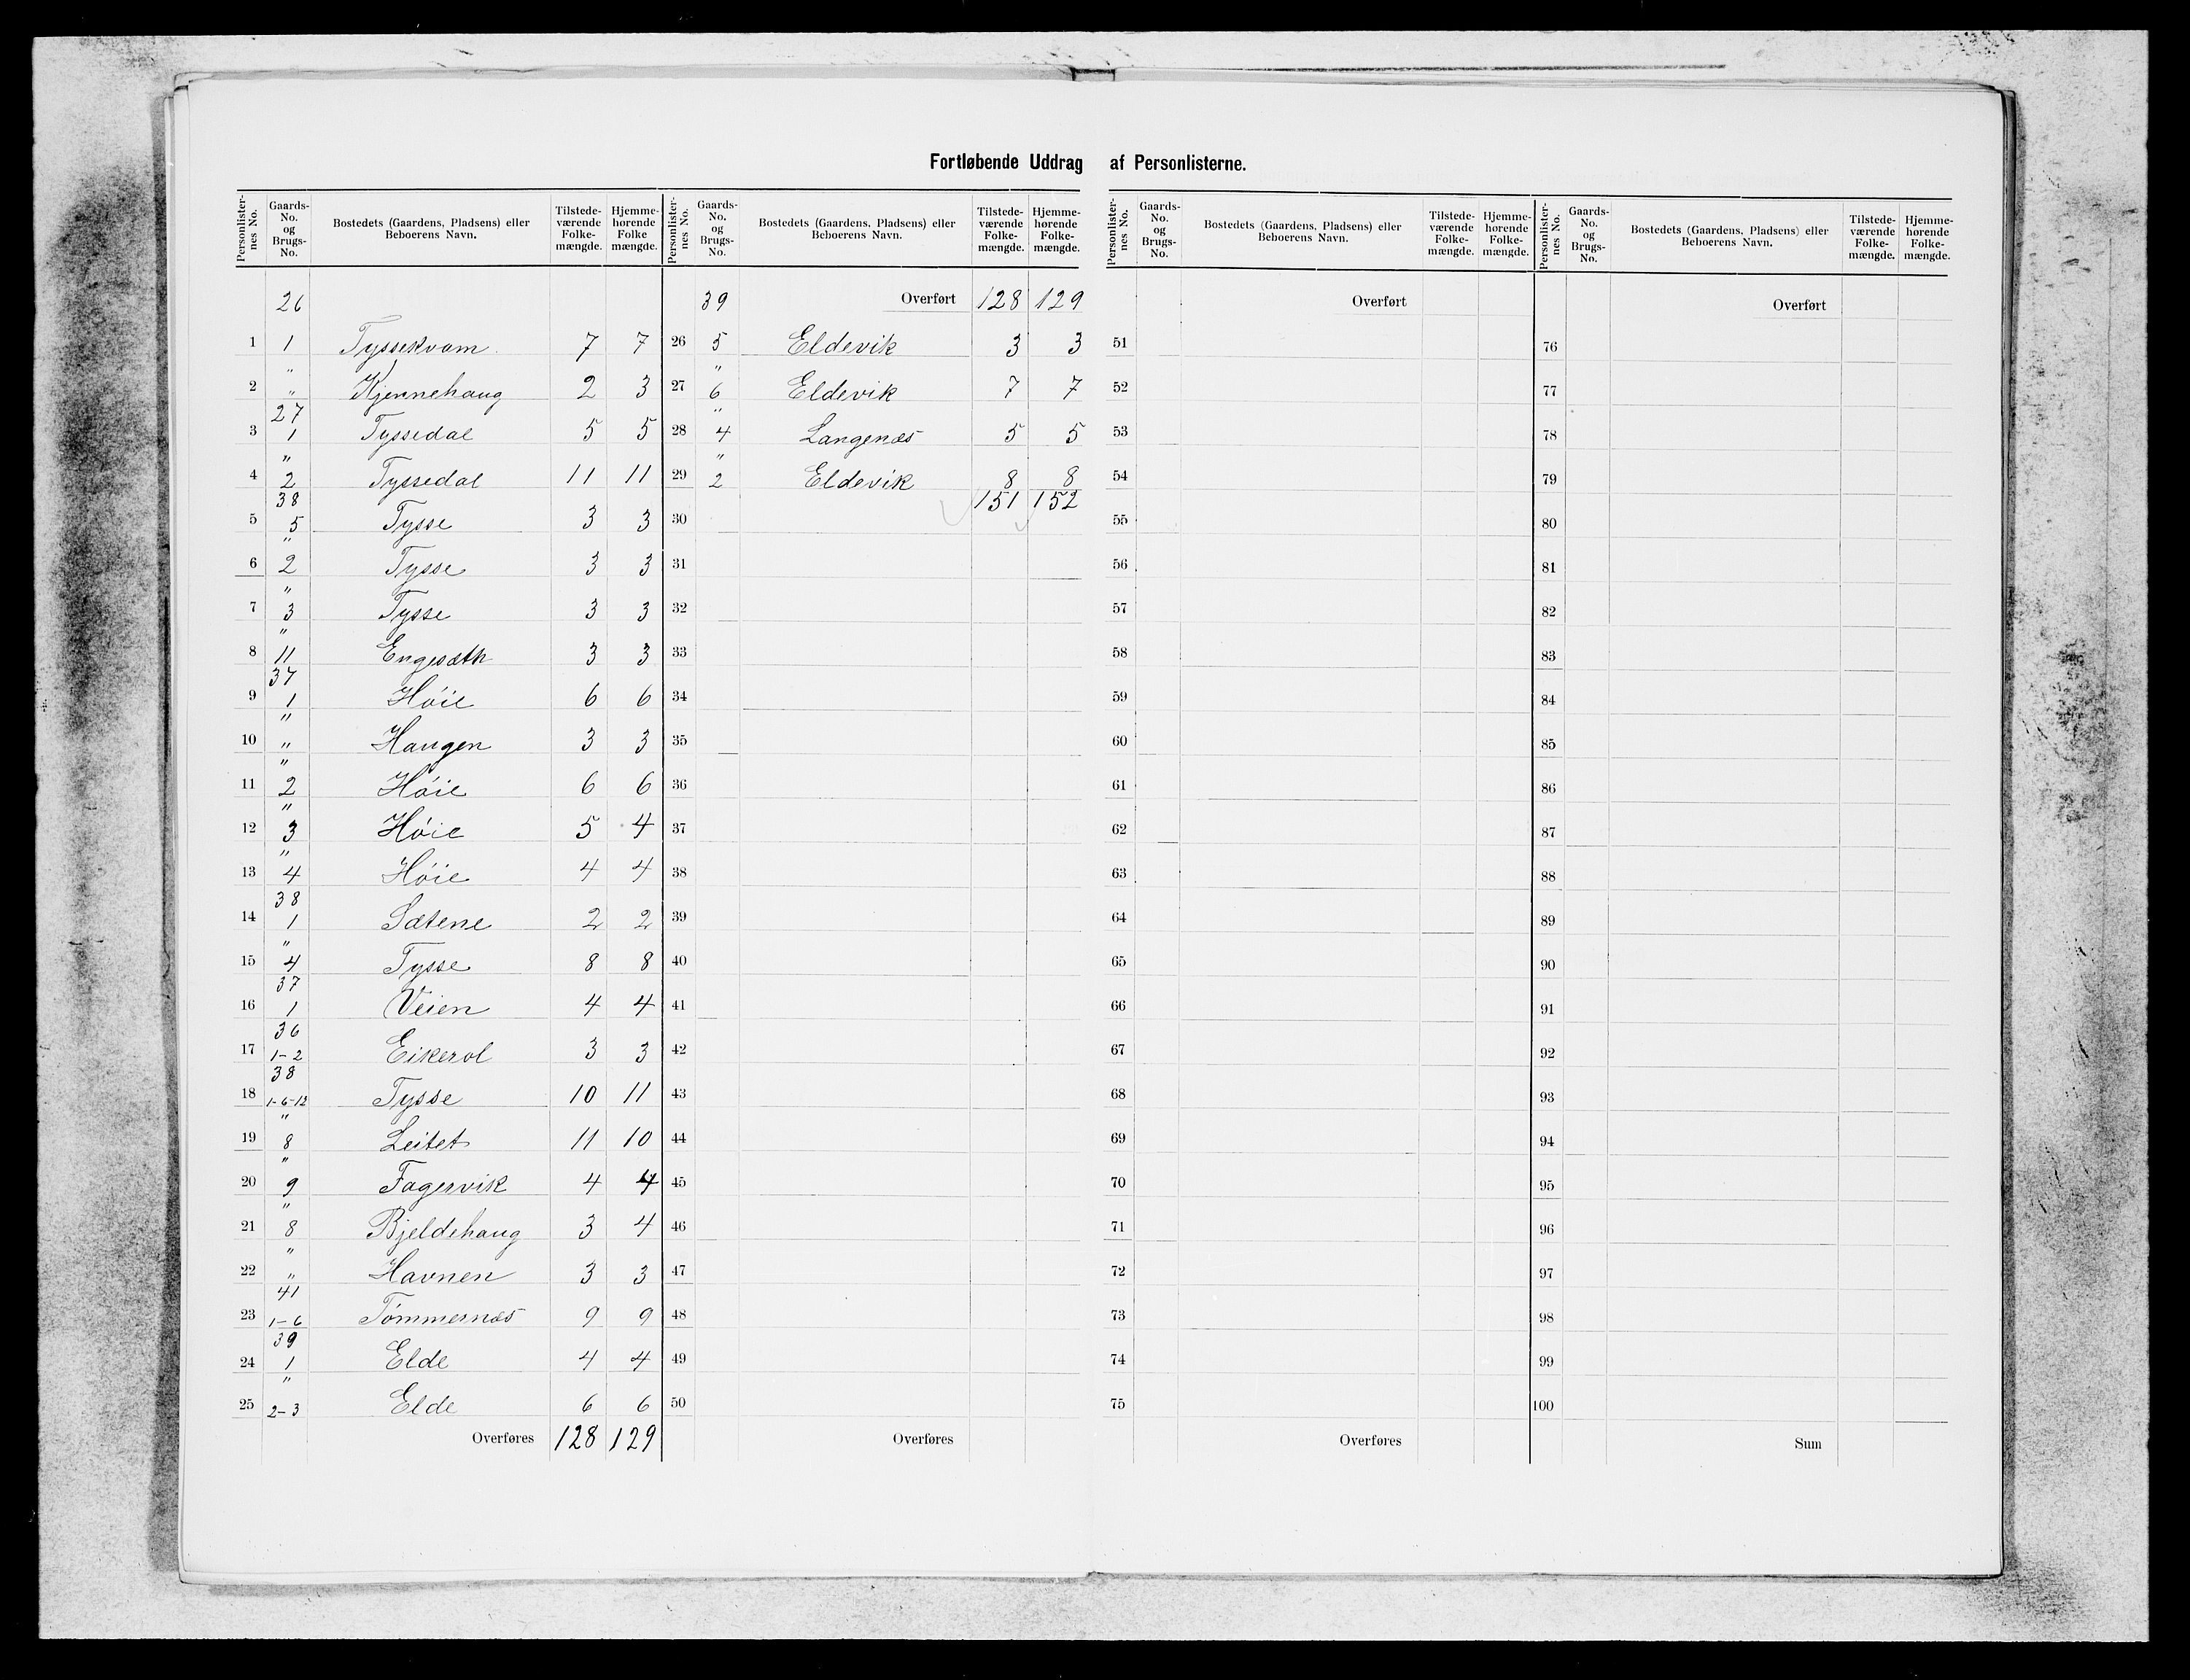 Fortløbende Uddrag af Personlisterne.
Personlisternes No. Gaards-No. og Brugs-No. Bostedets (Gaardens, Pladsens) eller Beboerens Navn. Tilstedeværende Folkemængde. Hjemmehørende Folkemængde.
26
1 1 Tyssekvam 7 7
2 " " Kjennehaug 2 3
3 27 1 Tyssedal 5 5
4 " 2 Tyssedal 11 11
5 38 5 Tysse 3 3
6 " 2 Tysse 3 3
7 " 3 Tysse 3 3
8 " 11 Engesæth 3 3
9 37 1 Høie 6 6
10 " " Haugen 3 3
11 " 2 Høie 6 6
12 " 3 Høie 5 4
13 " 4 Høie 4 4
14 38 1 Sætene 2 2
15 " 4 Tysse 8 8
16 37 1 Veien 4 4
17 36 1-2 Eikerol 3 3
18 38 1-6-12 Tysse 10 11
19 " 8 Leitet 11 10
20 " 9 Fagervik 4 4
21 " 8 Bjeldehaug 3 4
22 " " Havnen 3 3
23 41 1-6 Tømmernæs 9 9
24 39 1 Elde 4 4
25 " 2-3 Elde 6 6
Overføres 128 129
Personlisternes No. Gaards-No. og Brugs-No. Bostedets (Gaardens, Pladsens) eller Beboerens Navn. Tilstedeværende Folkemængde. Hjemmehørende Folkemængde.
39 Overført 128 129
26 5 Eldevik 3 3
27 " 6 Eldevik 7 7
28 " 4 Langenæs 5 5
29 " 2 Eldevik 8 8
151 152
30
31
32
33
34
35
36
37
38
39
40
41
42
43
44
45
46
47
48
49
50
Overføres
Personlisternes No. Gaards-No. og Brugs-No. Bostedets (Gaardens, Pladsens) eller Beboerens Navn. Tilstedeværende Folkemængde. Hjemmehørende Folkemængde.
Overført
51
52
53
54
55
56
57
58
59
60
61
62
63
64
65
66
67
68
69
70
71
72
73
74
75
Overføres
Personlisternes No. Gaards-No. og Brugs-No. Bostedets (Gaardens, Pladsens) eller Beboerens Navn. Tilstedeværende Folkemængde. Hjemmehørende Folkemængde.
Overført
76
77
78
79
80
81
82
83
84
85
86
87
88
89
90
91
92
93
94
95
96
97
98
99
100
Sum